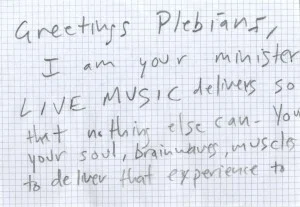 Greetings Plebians,
I am your minister
LIVE MUSIC delivers so
that nothing else can. You
your soul, brainwaves, muscles
to deliver that experience to